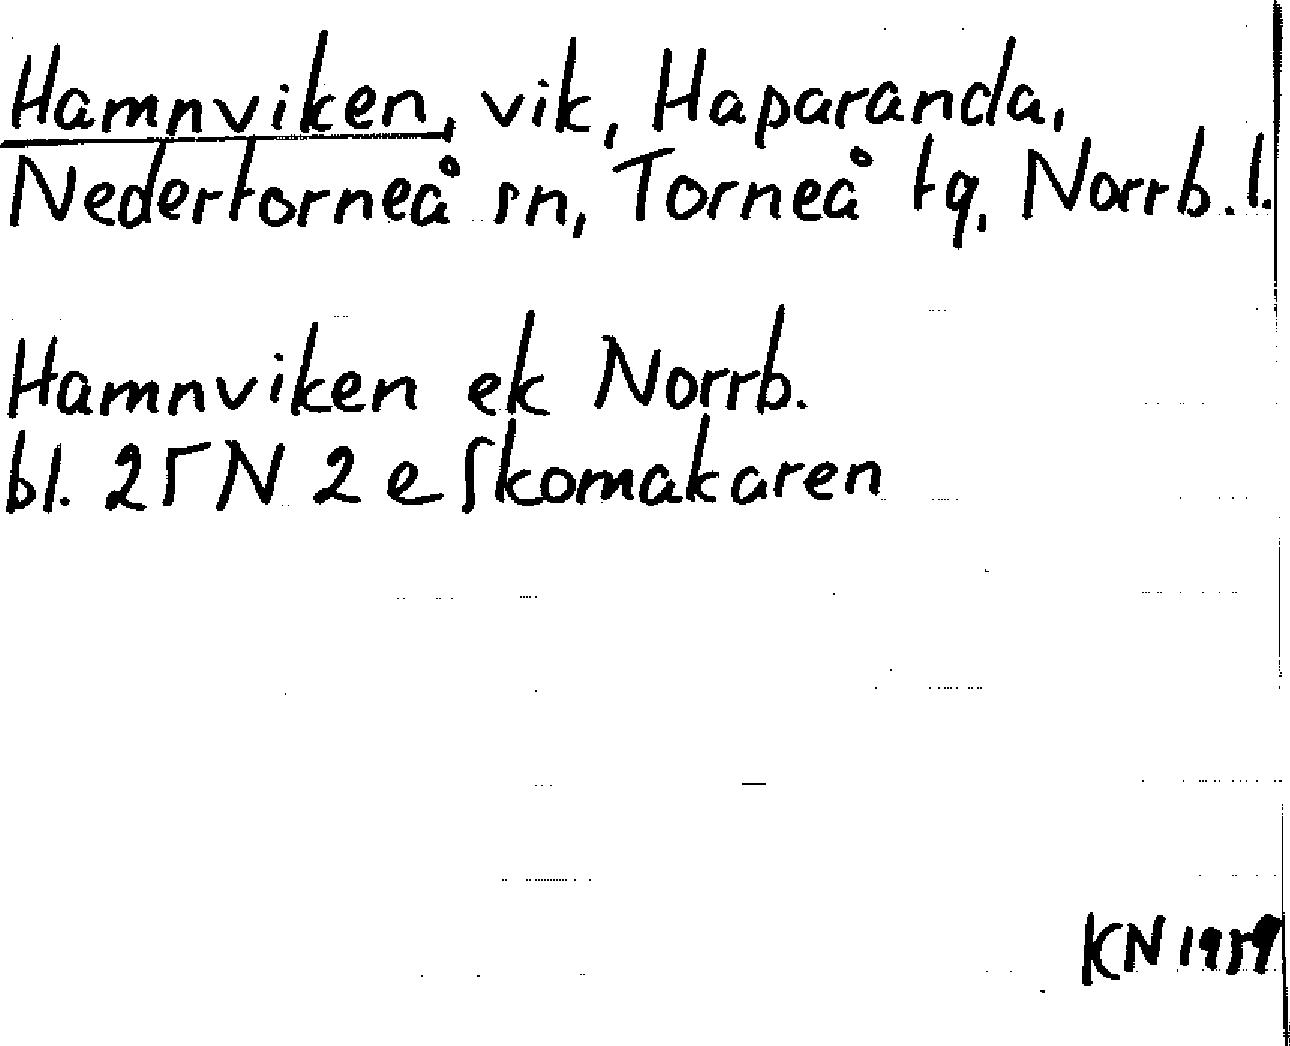 Hamnviken, vik, Haparanda,
Nedertorneå sn, Torneå tg, Norrb. l.
Hamnviken ek Norrb.
bl. 25 N 2 e Skomakaren
KN 1959